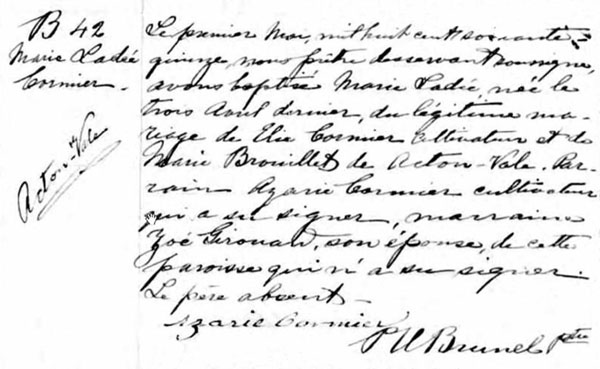 B 42
Marie Ladie
Cormier -
Acton-Vale
Le premier Mai, mil huit cent soixante
quinze, nous prêtre desservant soussigné,
avons baptisé Marie Ladie, née le
trois Avril dernier, du légitime ma-
riage de Elie Cormier cultivateur et de
Marie Brouillet de Acton-Vale. Par-
rain Azarie Cormier cultivateur
qui a su signer, marraine
Zoé Girouard, son épouse, de cette
paroisse qui n'a su signer.
Le père absent -
Azarie Cormier
P U Brunel ptre